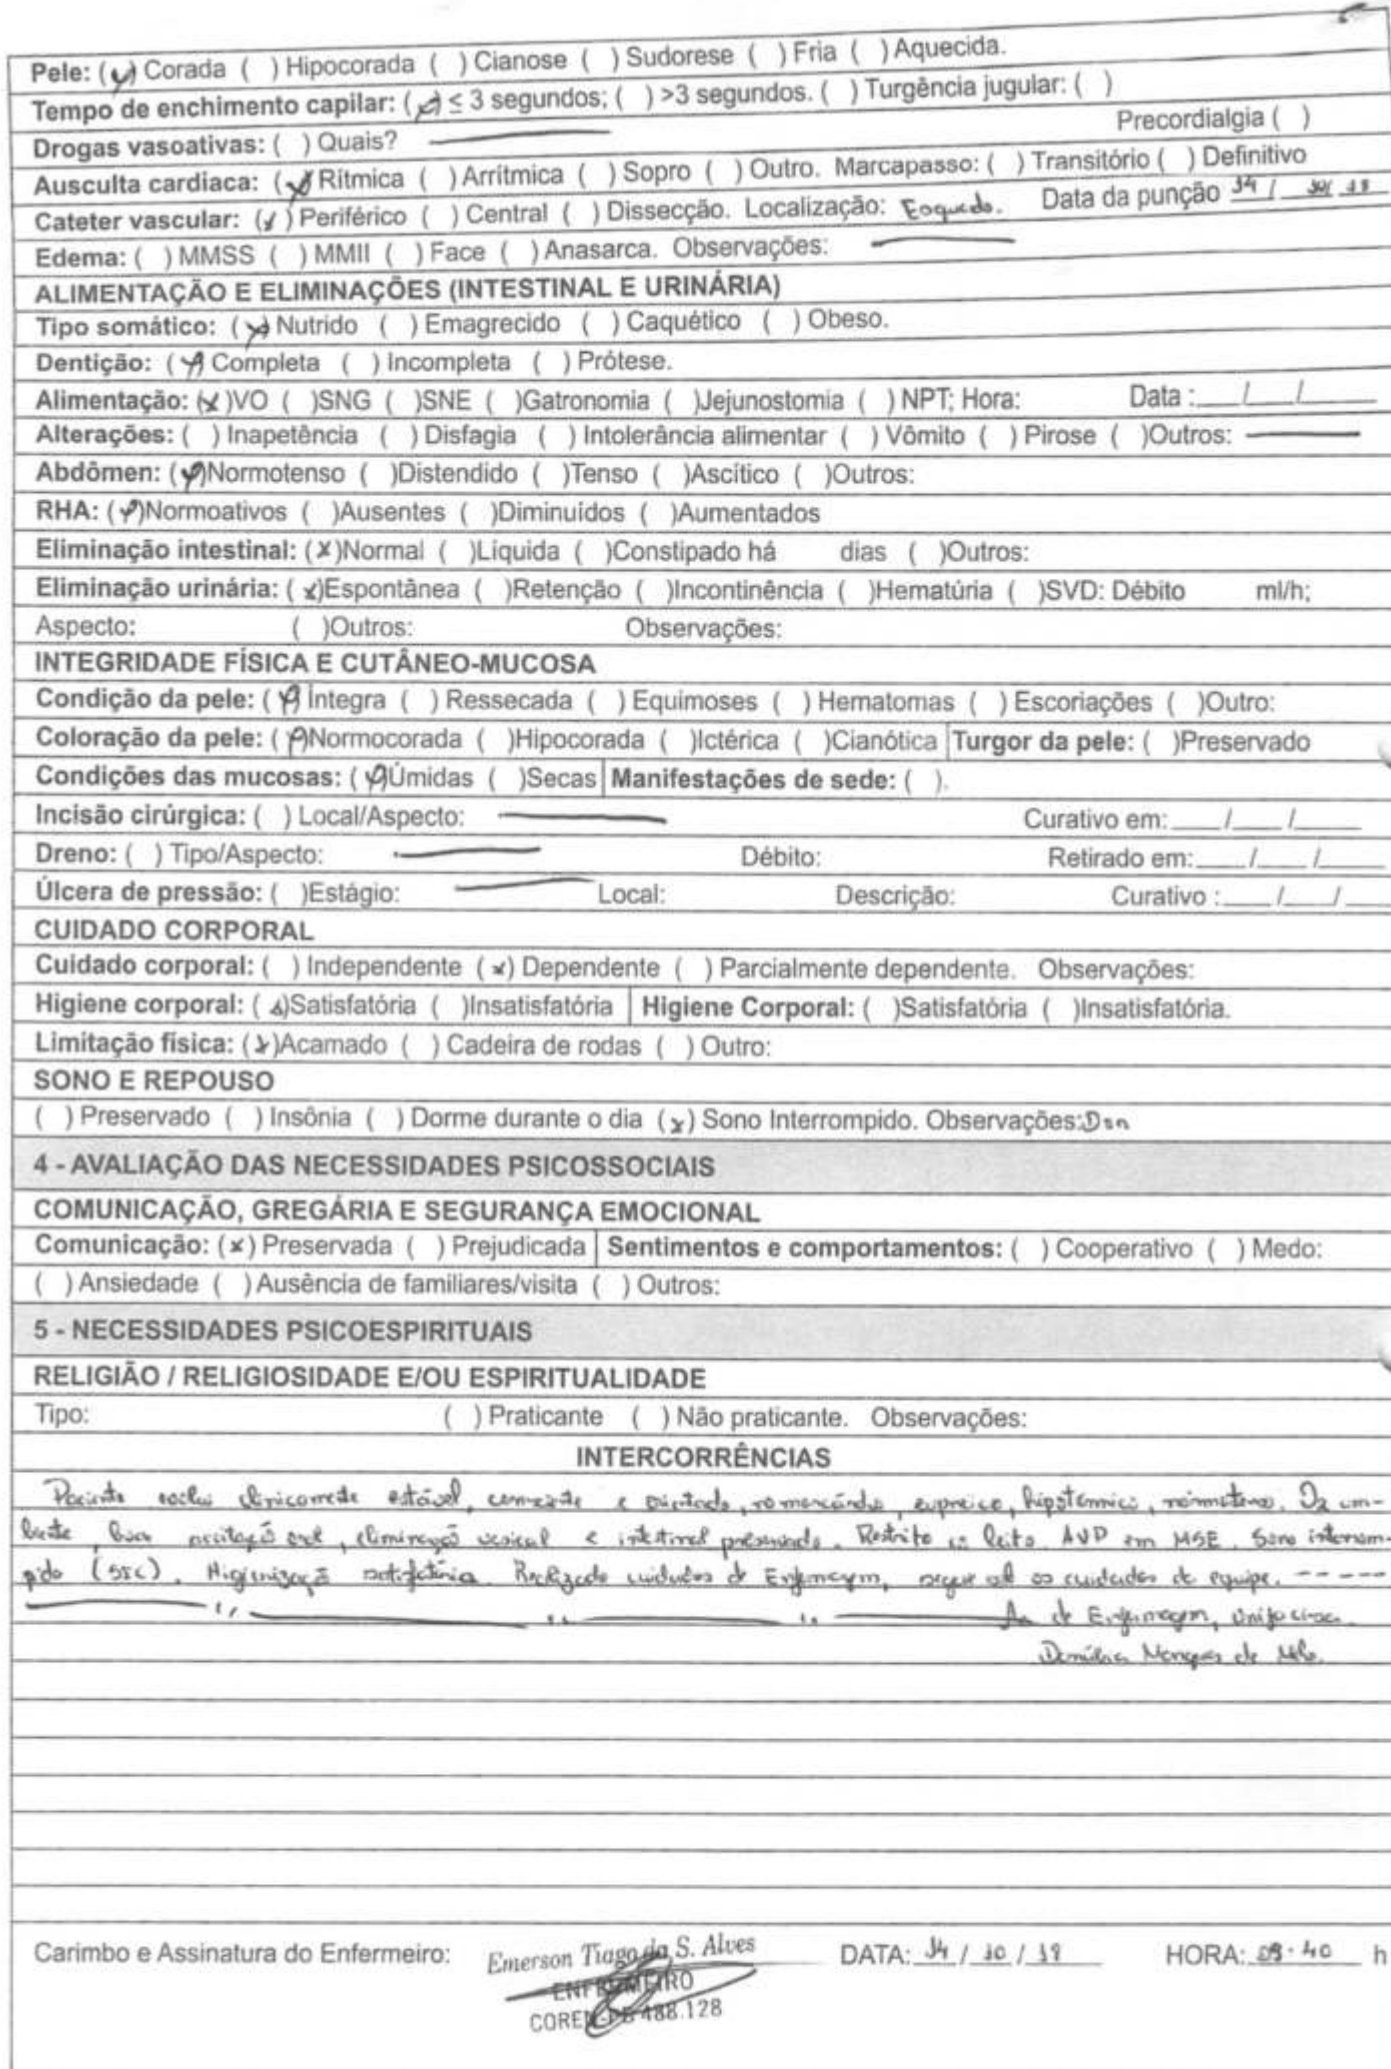 Pele: (x) Corada ( ) Hipocorada ( ) Cianose ( ) Sudorese ( ) Fria ( ) Aquecida.
Tempo de enchimento capilar: (x) ≤ 3 segundos; ( ) >3 segundos. ( ) Turgência jugular: ( )
Precordialgia ( )
Drogas vasoativas: ( ) Quais?
Ausculta cardiaca: (x) Rítmica ( ) Arrítmica ( ) Sopro ( ) Outro. Marcapasso: ( ) Transitório ( ) Definitivo
Cateter vascular: (x) Periférico ( ) Central ( ) Dissecção. Localização: Esquedo. Data da punção 14 / 10 / 18
Edema: ( ) MMSS ( ) MMII ( ) Face ( ) Anasarca. Observações:
ALIMENTAÇÃO E ELIMINAÇÕES (INTESTINAL E URINÁRIA)
Tipo somático: (x) Nutrido ( ) Emagrecido ( ) Caquético ( ) Obeso.
Dentição: (x) Completa ( ) Incompleta ( ) Prótese.
Alimentação: (x)VO ( )SNG ( )SNE ( )Gatronomia ( )Jejunostomia ( ) NPT; Hora: Data :___/___/___
Alterações: ( ) Inapetência ( ) Disfagia ( ) Intolerância alimentar ( ) Vômito ( ) Pirose ( )Outros:
Abdômen: (x)Normotenso ( )Distendido ( )Tenso ( )Ascítico ( )Outros:
RHA: (x)Normoativos ( )Ausentes ( )Diminuídos ( )Aumentados
Eliminação intestinal: (x)Normal ( )Líquida ( )Constipado há dias ( )Outros:
Eliminação urinária: (x)Espontânea ( )Retenção ( )Incontinência ( )Hematúria ( )SVD: Débito ml/h;
Aspecto: ( )Outros: Observações:
INTEGRIDADE FÍSICA E CUTÂNEO-MUCOSA
Condição da pele: (x) Íntegra ( ) Ressecada ( ) Equimoses ( ) Hematomas ( ) Escoriações ( )Outro:
Coloração da pele: (x)Normocorada ( )Hipocorada ( )Ictérica ( )Cianótica Turgor da pele: ( )Preservado
Condições das mucosas: (x)Úmidas ( )Secas Manifestações de sede: ( ).
Incisão cirúrgica: ( ) Local/Aspecto: Curativo em:___/___/___
Dreno: ( ) Tipo/Aspecto: Débito: Retirado em:___/___/___
Úlcera de pressão: ( )Estágio: Local: Descrição: Curativo :___/___/___
CUIDADO CORPORAL
Cuidado corporal: ( ) Independente (x) Dependente ( ) Parcialmente dependente. Observações:
Higiene corporal: (x)Satisfatória ( )Insatisfatória Higiene Corporal: ( )Satisfatória ( )Insatisfatória.
Limitação física: (x)Acamado ( ) Cadeira de rodas ( ) Outro:
SONO E REPOUSO
( ) Preservado ( ) Insônia ( ) Dorme durante o dia (x) Sono Interrompido. Observações:
4 - AVALIAÇÃO DAS NECESSIDADES PSICOSSOCIAIS
COMUNICAÇÃO, GREGÁRIA E SEGURANÇA EMOCIONAL
Comunicação: (x) Preservada ( ) Prejudicada Sentimentos e comportamentos: ( ) Cooperativo ( ) Medo:
( ) Ansiedade ( ) Ausência de familiares/visita ( ) Outros:
5 - NECESSIDADES PSICOESPIRITUAIS
RELIGIÃO / RELIGIOSIDADE E/OU ESPIRITUALIDADE
Tipo: ( ) Praticante ( ) Não praticante. Observações:
INTERCORRÊNCIAS
Paciente evolui clinicamente estável, consciente e orientado, eupneico, hipotermico, normotenso. O2 am-
biente, boa aceitação oral, eliminação vesical e intestinal presentes. Restrito ao leito. AVP em MSE. Sono interrom-
pido (SIC). Higienização satisfatória. Realizado cuidados de Enfermagem, segue sob os cuidados da equipe. -----
de Enfermagem,
Marques de Melo.
Carimbo e Assinatura do Enfermeiro: Emerson Tiago da S. Alves DATA: 14 / 10 / 18 HORA: 09:40 h
ENFERMEIRO
COREN-PB 488.128